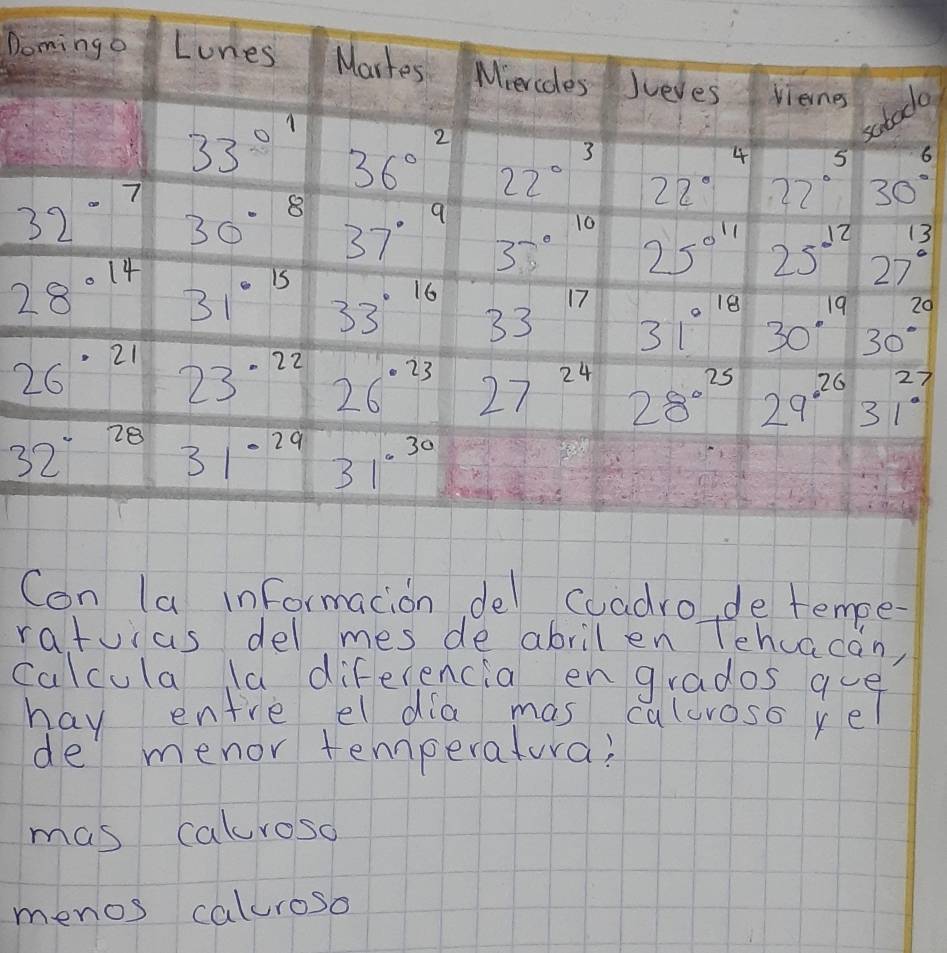 Domingo Lunes Martes Miercoles Jueves Viernes sabado
33° 1 36° 2 22° 3 22° 4 22° 5 30° 6
32° 7 30° 8 37° 9 10 25° 11 25° 12 27° 13
28° 14 31° 15 33° 16 33 17 31° 18 30° 19 30° 20
26° 21 23° 22 26° 23 27 24 28° 25 29° 26 31° 27
32° 28 31° 29 31° 30
Con la información del cuadro de tempe-
raturas del mes de abril en Tehuacán,
calcula la diferencia en grados que
hay entre el día mas caluroso y el
de menor temperatura:
mas caluroso
menos caluroso